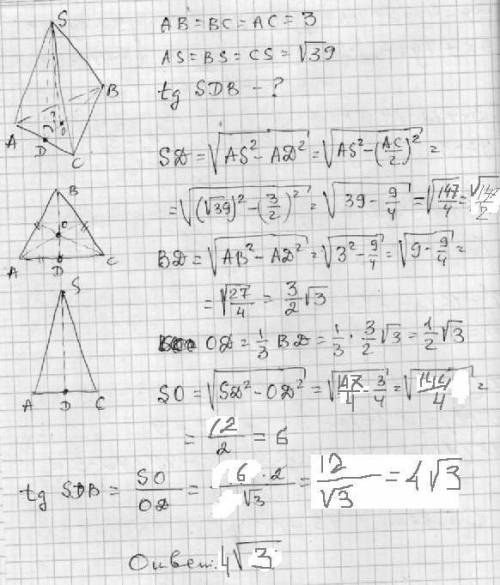 S
A
B
C
D
O
AB = BC = AC = 3
AS = BS = CS = √39
tg SDB - ?
SD = √(AS² - AD²) = √(AS² - (AC/2)²) =
= √((√39)² - (3/2)²) = √(39 - 9/4) = √(147/4) = √147/2
B
O
A
D
C
BD = √(AB² - AD²) = √(3² - 9/4) = √(9 - 9/4) =
= √(27/4) = 3/2 √3
S
A
D
C
OD = 1/3 BD = 1/3 · 3/2 √3 = 1/2 √3
SO = √(SD² - OD²) = √(147/4 - 3/4) = √(144/4) =
= 12/2 = 6
tg SDB = SO/OD = 6·2/√3 = 12/√3 = 4√3
Ответ: 4√3